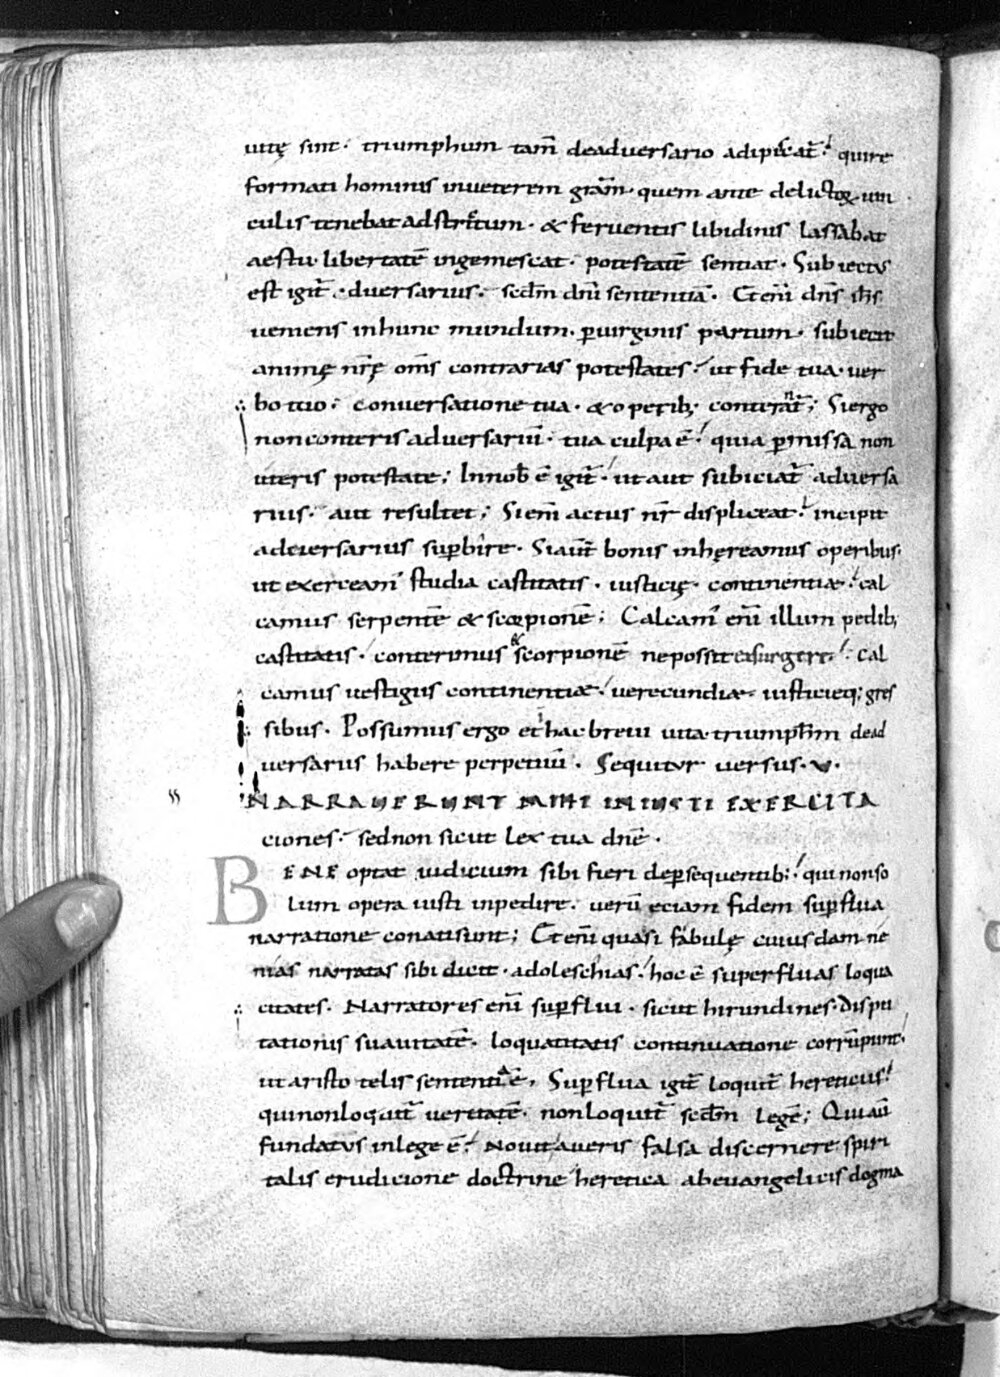 uitę sint · triumphum tam̄ deadversario adipiscat̄ · quire
formati hominis inveterem grām · quem ante delictoꝝ uin
culis tenebat adstrictum · & ferventis libidinis lassabat
aestu · libertatē ingemescat · potestatē sentiat · Subiectus
est igit̄ · dversarius · secdm̄ dnī sententiā · Etenī dnś ihś
veniens inhunc mundum · ꝑvirginis partum · subiecit
animę nrę om̄s contrarias potestates · ut fide tua · ver
bo tuo · conversatione tua · & operib; conterant̄ ; Siergo
nonconteris adversariū · tua culpa ē · quia ꝑmissa non
uteris potestate ; Innob̄ ē igit̄ · ut aut subiciat̄ adversa
rius · aut resultet ; Sienī actus nr̄ displiceat · incipit
adversarius suꝑbire · Siaut̄ bonis inhęreamus operibus ·
ut exerceam' studia castitatis · iusticię · continentiae · cal
camus serpentē & scorpionē ; Calcam' enī illum pedib;
castitatis · conterimus & scorpionē nepossit resurgere · cal
camus vestigiis continentiae · verecundiae · iusticieq; gres
sibus · Possumus ergo et in hac brevi vita · triumphum dead
versarius habere perpetuū · Sequitur versus · v ·
NARRAVERUNT MIHI INIUSTI EXERCITA
ciones · sednon sicut lex tua dnē ·
BENE optat iudicium sibi fieri depsequentib; · quinonso
lum opera iusti inpedire · verū eciam fidem suꝑflua
narratione conatisunt ; Etenī quasi fabulę cuiusdam ne
nias narratas sibi dicit · adoleschias · hoc ē superfluas loqua
citates · Narratores enī suꝑflui · sicut hirundines · dispu
tationis suavitatē · loquatitatis continuatione corrūpunt ·
ut aristotelis sententia ē, Suꝑflua igit̄ loquit̄ hereticus ·
quinonloquit̄ veritatē · nonloquit̄ secdm̄ legē ; Quiaū
fundatus inlege ē · Novit averis falsa discernere spiri
talis erudicione doctrine heretica abevangelicis dogma